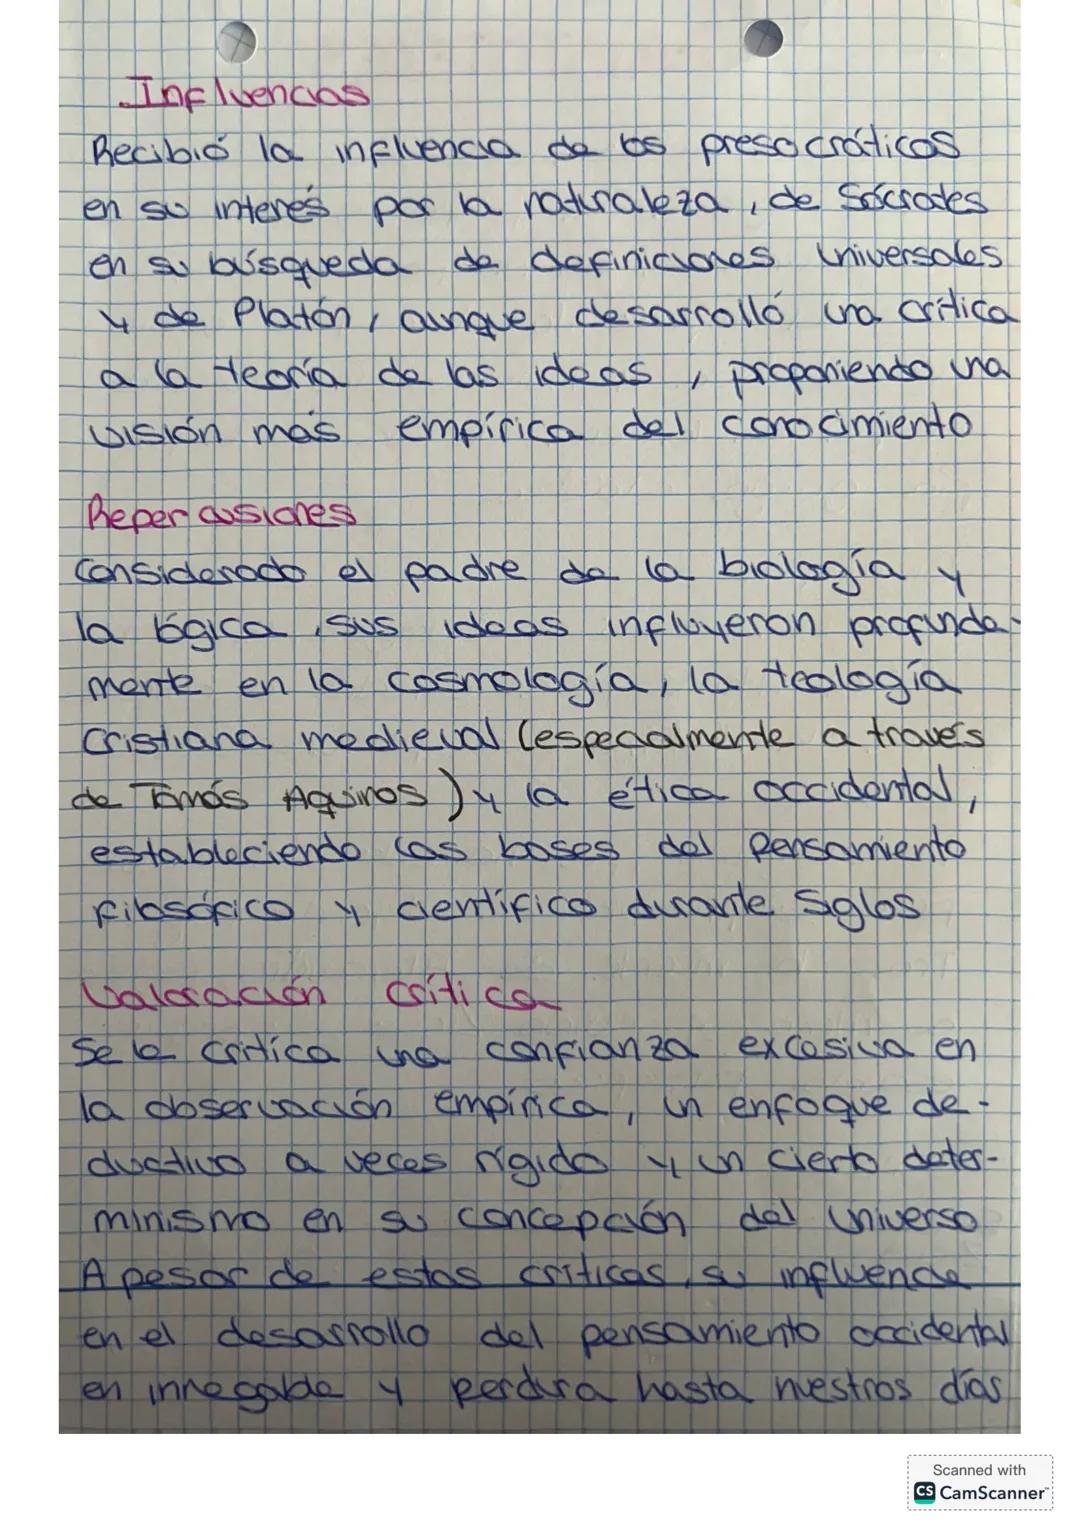 Influencias
Recibió la influencia de los presocráticos
en su interés por la naturaleza, de Sócrates
en su búsqueda de definiciones universales
y de Platón, aunque desarrolló una crítica
a la teoría de las ideas, proponiendo una
visión más empírica del conocimiento
Repercusiones
Considerado el padre de la biología y
la lógica, sus ideas influyeron profunda-
mente en la cosmología, la teología
cristiana medieval (especialmente a través
de Tomás Aquinos) y la ética occidental,
estableciendo las bases del pensamiento
filosófico y científico durante siglos
Valoración crítica
Se le critica una confianza excesiva en
la observación empírica, un enfoque de-
ductivo a veces rígido y un cierto deter-
minismo en su concepción del universo
A pesar de estas críticas, su influencia
en el desarrollo del pensamiento occidental
en innegable y perdura hasta nuestros días
Scanned with
CS CamScanner